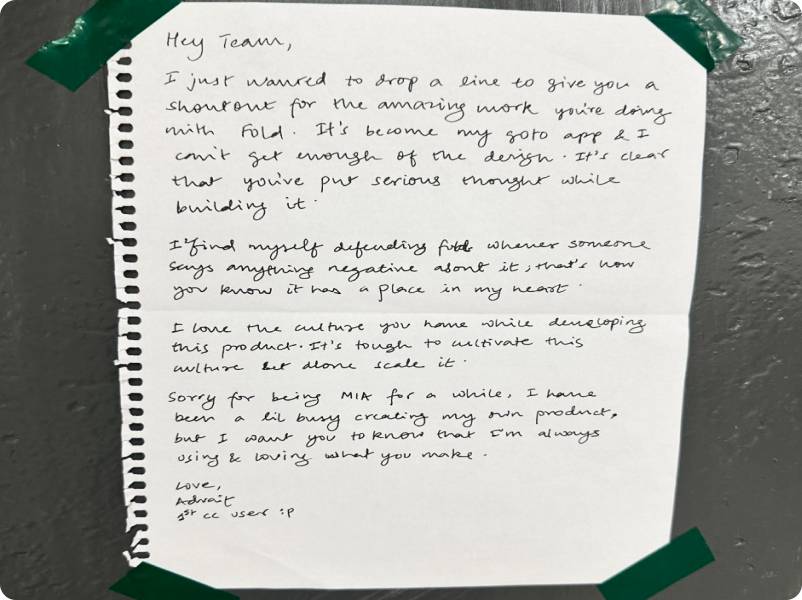 Hey Team,
I just wanted to drop a line to give you a
shoutout for the amazing work you're doing
with Fold. It's become my goto app & I
can't get enough of the design. It's clear
that you've put serious thought while
building it.
I find myself defending fold whenever someone
says anything negative about it, that's how
you know it has a place in my heart.
I love the culture you have while developing
this product. It's tough to cultivate this
culture let alone scale it.
Sorry for being MIA for a while, I have
been a lil busy creating my own product,
but I want you to know that I'm always
using & loving what you make.
Love,
Advait
1st cc user :P